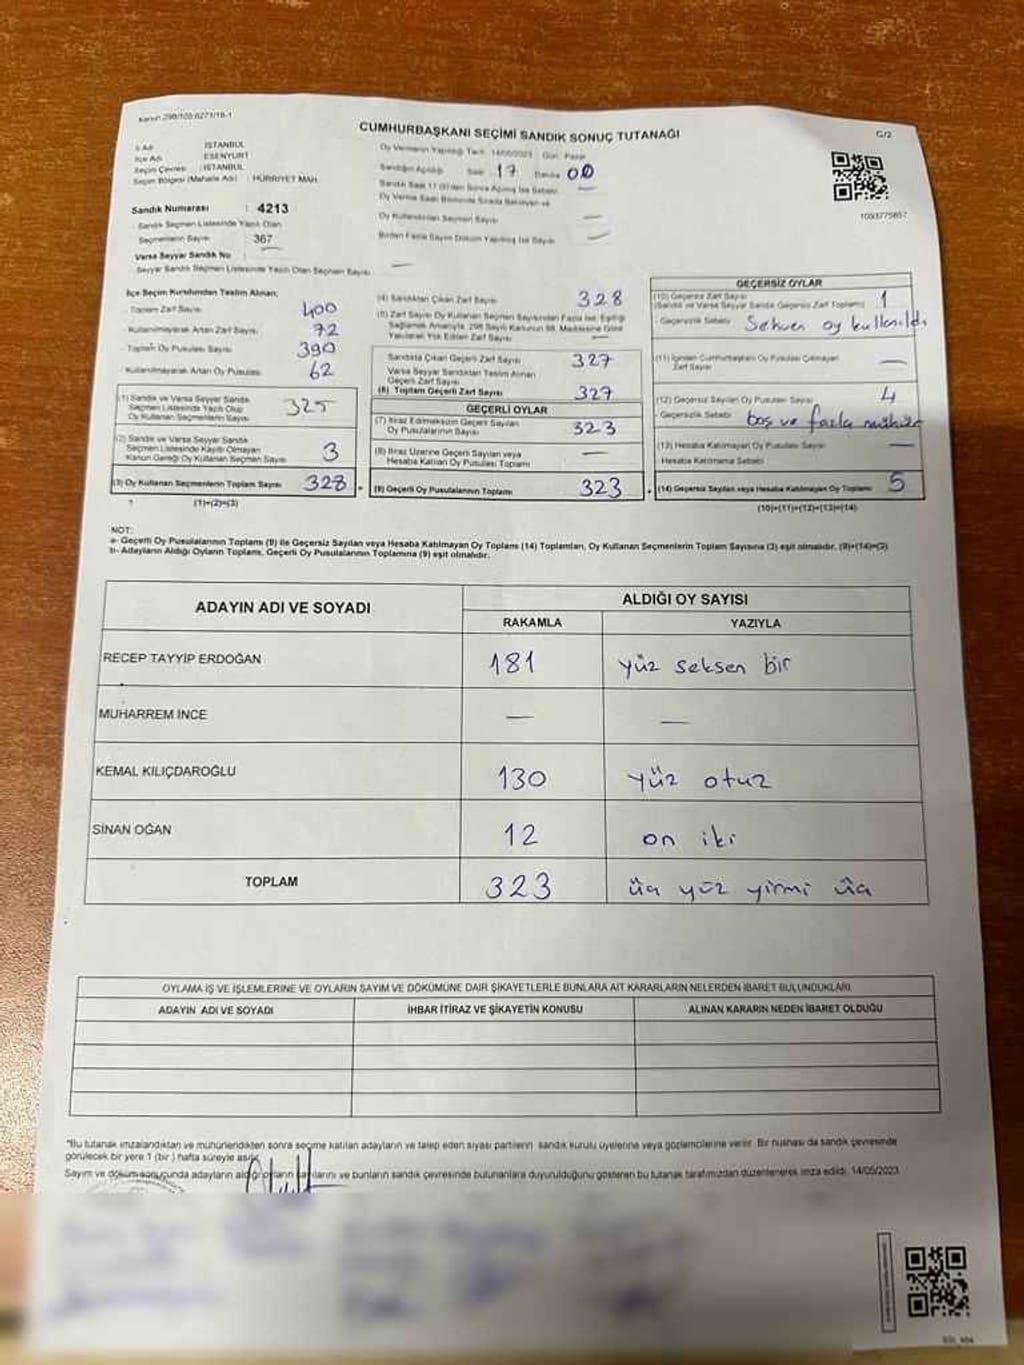 Kanun 298/105.6271/18-1
CUMHURBAŞKANI SEÇİMİ SANDIK SONUÇ TUTANAĞI
C/2
İl Adı : İSTANBUL
İlçe Adı : ESENYURT
Seçim Çevresi : İSTANBUL
Seçim Bölgesi (Mahalle Adı) : HÜRRİYET MAH.
Sandık Numarası : 4213
Sandık Seçmen Listesinde Yazılı Olan
Seçmenlerin Sayısı 367
Varsa Seyyar Sandık No
Seyyar Sandık Seçmen Listesinde Yazılı Olan Seçmen Sayısı —
Oy Vermenin Yapıldığı Tarih 14/05/2023 Gün Pazar
Sandığın Açıldığı Saat 17 Dakika 00
Sandık Saat 17:00'den Sonra Açılmış İse Sebebi —
Oy Verme Saati Bitiminde Sırada Bekleyen ve
Oy Kullandırılan Seçmen Sayısı —
Birden Fazla Sayım Döküm Yapılmış İse Sayısı —
1093775857
İlçe Seçim Kurulundan Teslim Alınan;
- Toplam Zarf Sayısı 400
- Kullanılmayarak Artan Zarf Sayısı 72
- Toplam Oy Pusulası Sayısı 390
- Kullanılmayarak Artan Oy Pusulası 62
(1) Sandık ve Varsa Seyyar Sandık
Seçmen Listesinde Yazılı Olup
Oy Kullanan Seçmenlerin Sayısı 325
(2) Sandık ve Varsa Seyyar Sandık
Seçmen Listesinde Kayıtlı Olmayan
Kanun Gereği Oy Kullanan Seçmen Sayısı 3
(3) Oy Kullanan Seçmenlerin Toplam Sayısı 328
(1)+(2)=(3)
(4) Sandıktan Çıkan Zarf Sayısı 328
(5) Zarf Sayısı Oy Kullanan Seçmen Sayısından Fazla İse, Eşitliği
Sağlamak Amacıyla, 298 Sayılı Kanunun 98. Maddesine Göre
Yakılarak Yok Edilen Zarf Sayısı —
Sandıkta Çıkan Geçerli Zarf Sayısı 327
Varsa Seyyar Sandıktan Teslim Alınan
Geçerli Zarf Sayısı
(6) Toplam Geçerli Zarf Sayısı 327
GEÇERLİ OYLAR
(7) İtiraz Edilmeksizin Geçerli Sayılan
Oy Pusulalarının Sayısı 323
(8) İtiraz Üzerine Geçerli Sayılan veya
Hesaba Katılan Oy Pusulası Toplamı —
(9) Geçerli Oy Pusulalarının Toplamı 323
GEÇERSİZ OYLAR
(10) Geçersiz Zarf Sayısı
(Sandık ve Varsa Seyyar Sandık Geçersiz Zarf Toplamı) 1
- Geçersizlik Sebebi Sehven oy kullanıldı
(11) İçinden Cumhurbaşkanı Oy Pusulası Çıkmayan
Zarf Sayısı —
(12) Geçersiz Sayılan Oy Pusulası Sayısı 4
- Geçersizlik Sebebi boş ve fazla mühür
(13) Hesaba Katılmayan Oy Pusulası Sayısı —
Hesaba Katılmama Sebebi
(14) Geçersiz Sayılan veya Hesaba Katılmayan Oy Toplamı 5
(10)+(11)+(12)+(13)=(14)
NOT:
a- Geçerli Oy Pusulalarının Toplamı (9) ile Geçersiz Sayılan veya Hesaba Katılmayan Oy Toplamı (14) Toplamları, Oy Kullanan Seçmenlerin Toplam Sayısına (3) eşit olmalıdır. (9)+(14)=(3)
b- Adayların Aldığı Oyların Toplamı, Geçerli Oy Pusulalarının Toplamına (9) eşit olmalıdır.
ADAYIN ADI VE SOYADI ALDIĞI OY SAYISI
RAKAMLA YAZIYLA
RECEP TAYYİP ERDOĞAN 181 yüz seksen bir
MUHARREM İNCE — —
KEMAL KILIÇDAROĞLU 130 yüz otuz
SİNAN OĞAN 12 on iki
TOPLAM 323 üç yüz yirmi üç
OYLAMA İŞ VE İŞLEMLERİNE VE OYLARIN SAYIM VE DÖKÜMÜNE DAİR ŞİKAYETLERLE BUNLARA AİT KARARLARIN NELERDEN İBARET BULUNDUKLARI
ADAYIN ADI VE SOYADI İHBAR İTİRAZ VE ŞİKAYETİN KONUSU ALINAN KARARIN NEDEN İBARET OLDUĞU
*Bu tutanak imzalandıktan ve mühürlendikten sonra seçime katılan adayların ve talep eden siyasi partilerin sandık kurulu üyelerine veya gözlemcilerine verilir. Bir nüshası da sandık çevresinde
görülecek bir yere 1 (bir) hafta süreyle asılır.
Sayım ve döküm sonucunda adayların aldığı oyların sayılarını ve bunların sandık çevresinde bulunanlara duyurulduğunu gösteren bu tutanak tarafımızdan düzenlenerek imza edildi. 14/05/2023